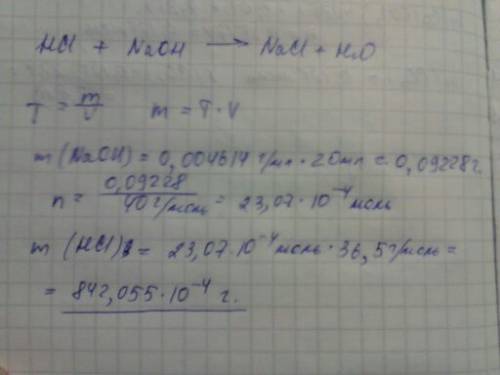 HCl + NaOH → NaCl + H₂O
T = m/V   m = T · V
m (NaOH) = 0,004614 г/мл · 20 мл = 0,09228 г.
n = 0,09228 / 40 г/моль = 23,07 · 10⁻⁴ моль
m (HCl) = 23,07 · 10⁻⁴ моль · 36,5 г/моль =
= 842,055 · 10⁻⁴ г.